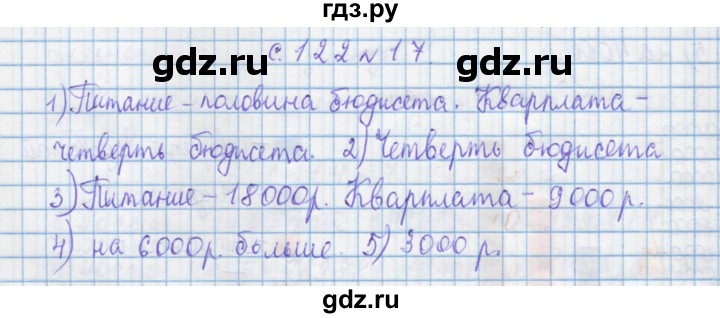 гдз.ру
gdz.ru gdz.ru
с. 122 № 17.
1) Питание – половина бюджета. Квартплата –
четверть бюджета. 2) Четверть бюджета
3) Питание – 18000р. Квартплата – 9000 р.
gdz.ru gdz.ru
4) на 6000р. больше. 5) 3000 р.
gdz.ru